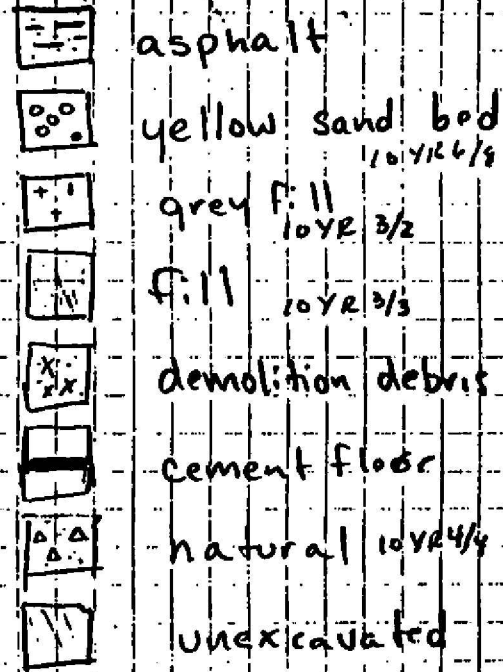 asphalt
yellow sand bed
10 YR 6/8
grey fill
10 YR 3/2
fill 10 YR 3/3
demolition debris
cement floor
natural 10 YR 4/4
unexcavated